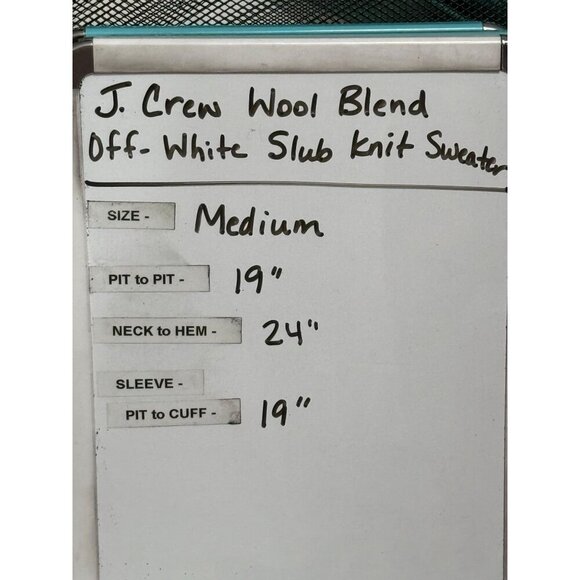 J. Crew Wool Blend
Off-White Slub Knit Sweater
SIZE - Medium
PIT to PIT - 19"
NECK to HEM - 24"
SLEEVE -
PIT to CUFF - 19"